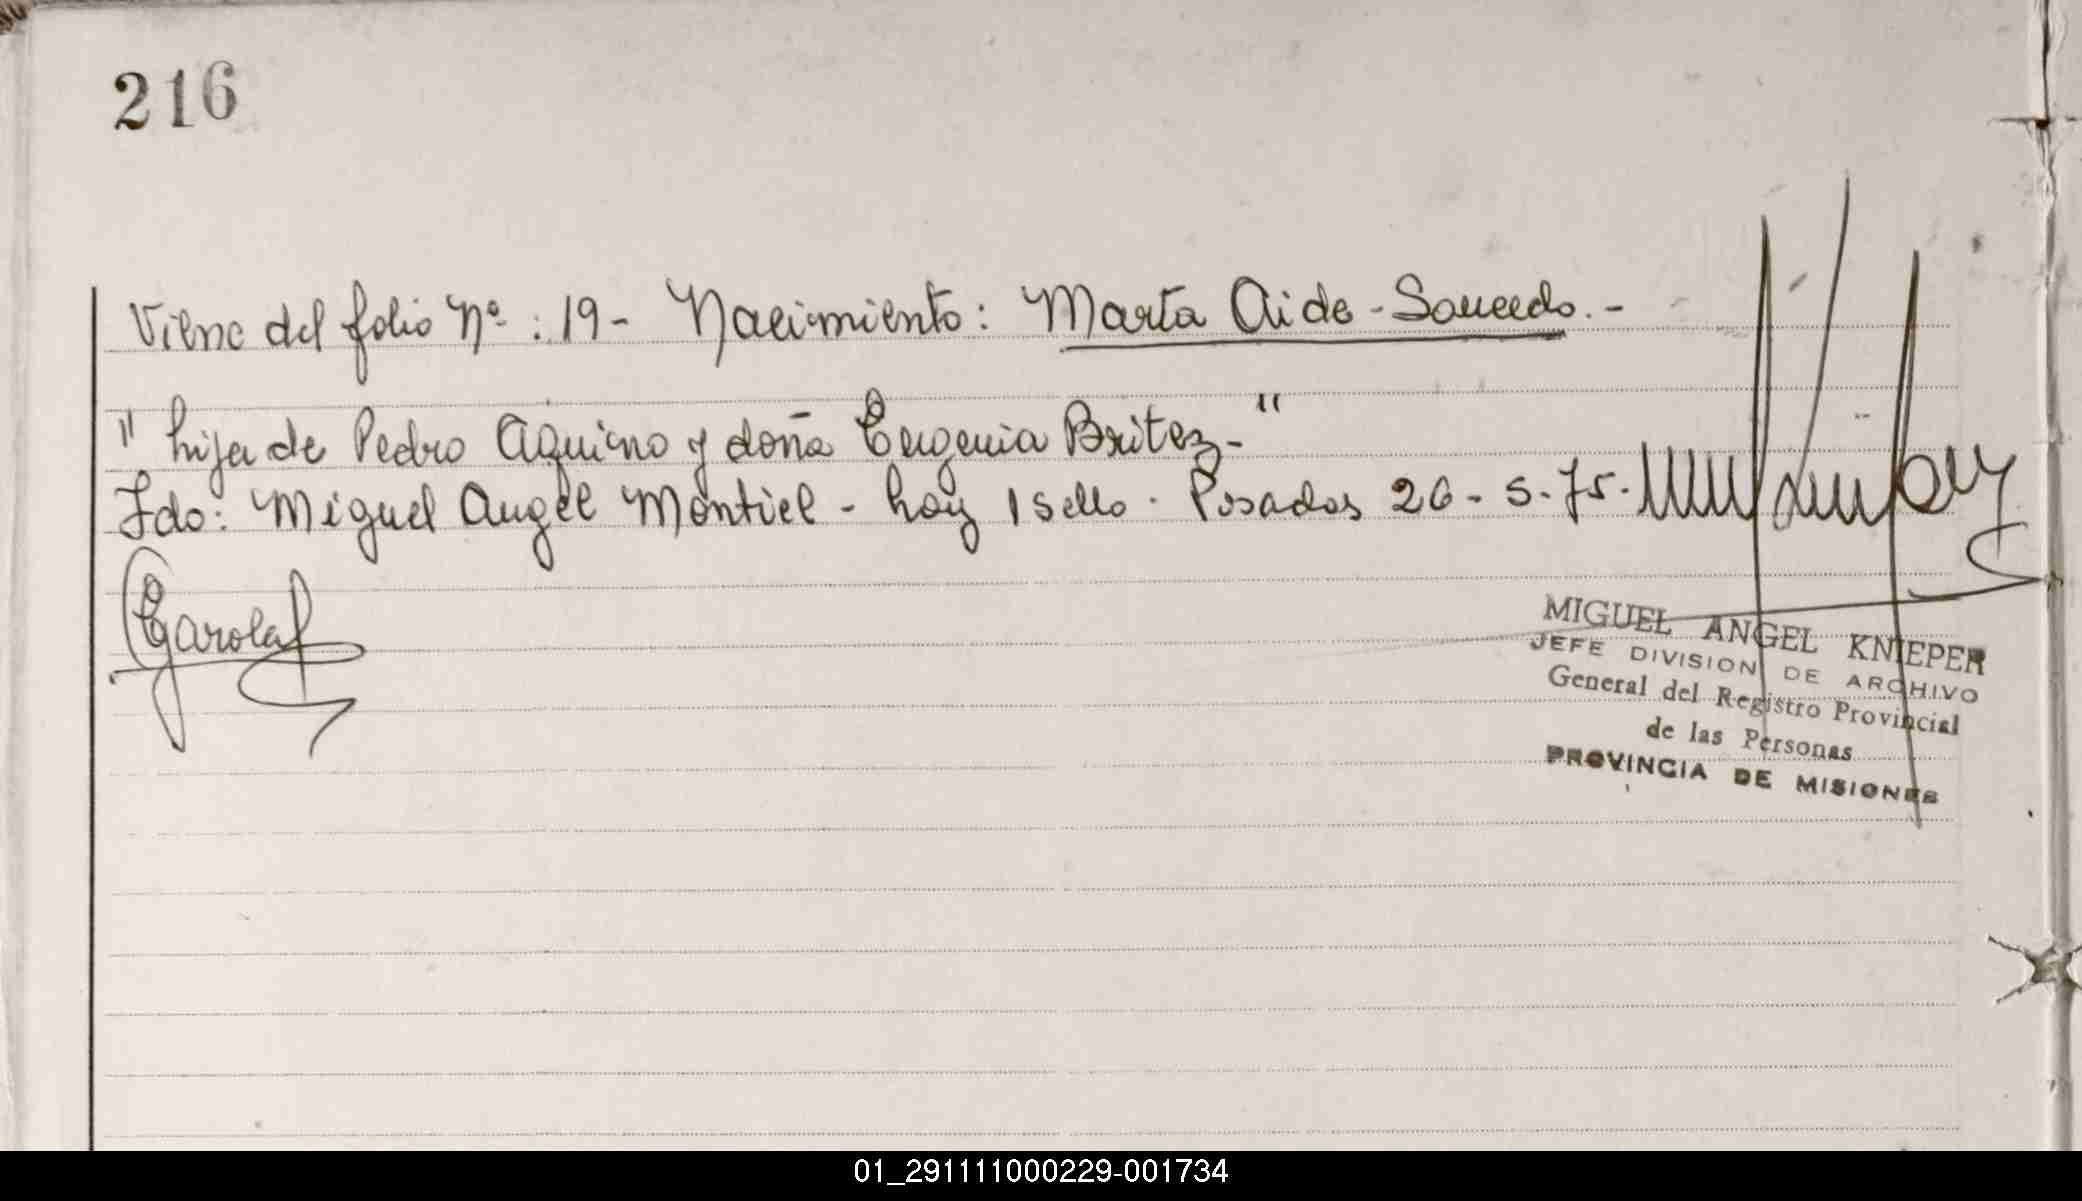 216
Viene del folio Nº: 19 - Nacimiento: Marta Aide - Saucedo. -
" hija de Pedro Aquino y doña Eugenia Britez - "
Fdo: Miguel Angel Montiel - hay 1 sello. Posadas 26 - 5 - 75.
EGarola
MIGUEL ANGEL KNIEPER
JEFE DIVISION DE ARCHIVO
General del Registro Provincial
de las Personas
PROVINCIA DE MISIONES
01_291111000229-001734